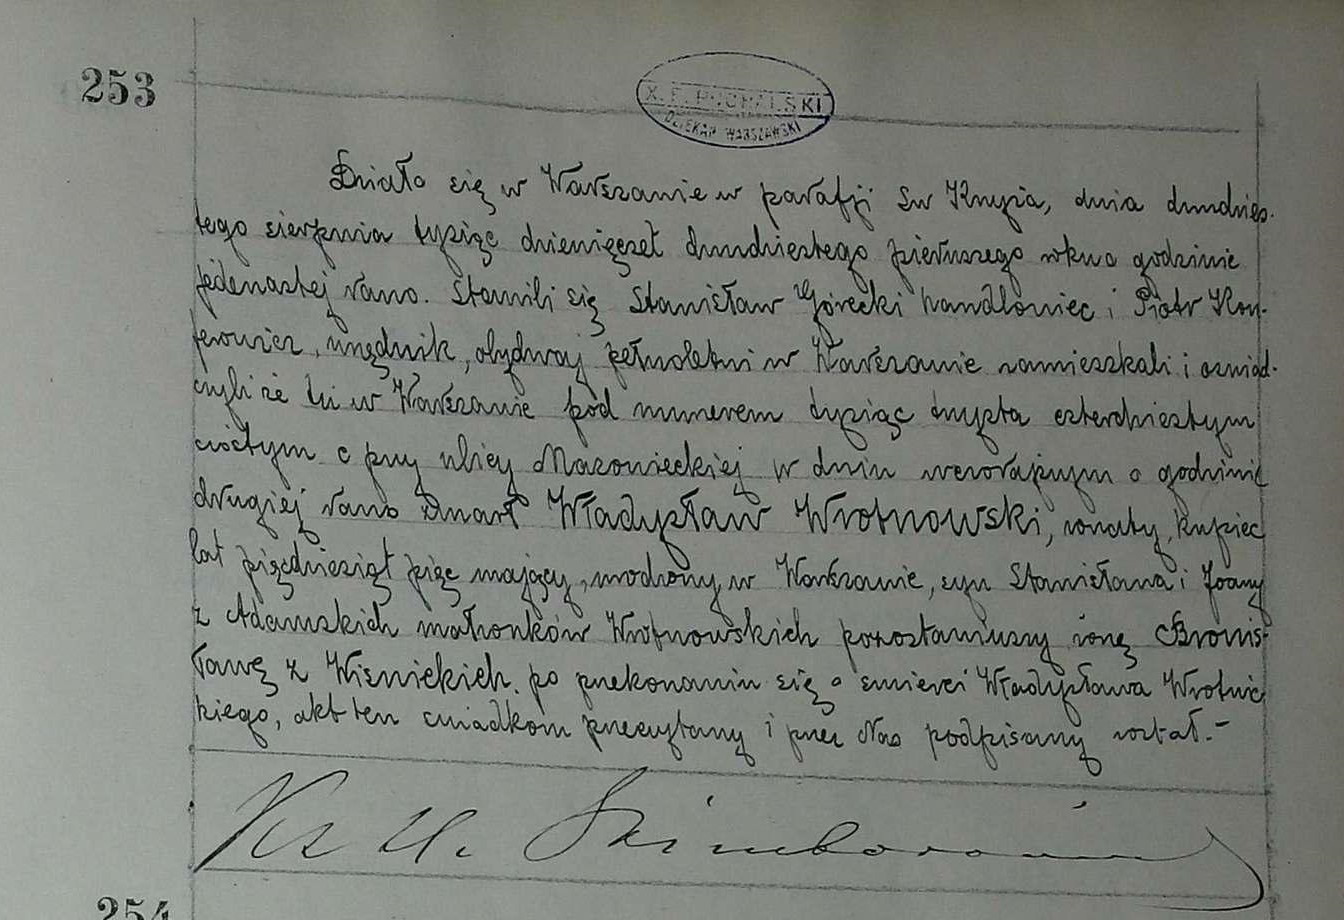 253
X. F. PUCHALSKI
DZIEKAN WARSZAWSKI
Działo się w Warszawie w parafji św Krzyża, dnia dwudzies-
tego sierpnia tysiąc dziewięćset dwudziestego pierwszego roku o godzinie
jedenastej rano. Stawili się Stanisław Górecki handlowiec i Piotr Kon-
ferowicz, urzędnik, obydwaj pełnoletni w Warszawie zamieszkali i oświad-
czyli że tu w Warszawie pod numerem tysiąc trzysta czterdziestym
szóstym c przy ulicy Mazowieckiej w dniu wczorajszym o godzinie
drugiej rano zmarł Władysław Wrotnowski, żonaty, kupiec
lat pięćdziesiąt pięć mający, urodzony w Warszawie, syn Stanisława i Joany
z Adamskich małżonków Wrotnowskich pozostawiwszy żonę Bronis-
ławę z Wiśnickich. po przekonaniu się o śmierci Władysława
kiego, akt ten świadkom przeczytany i przez Nas podpisany został.-
Ks
254